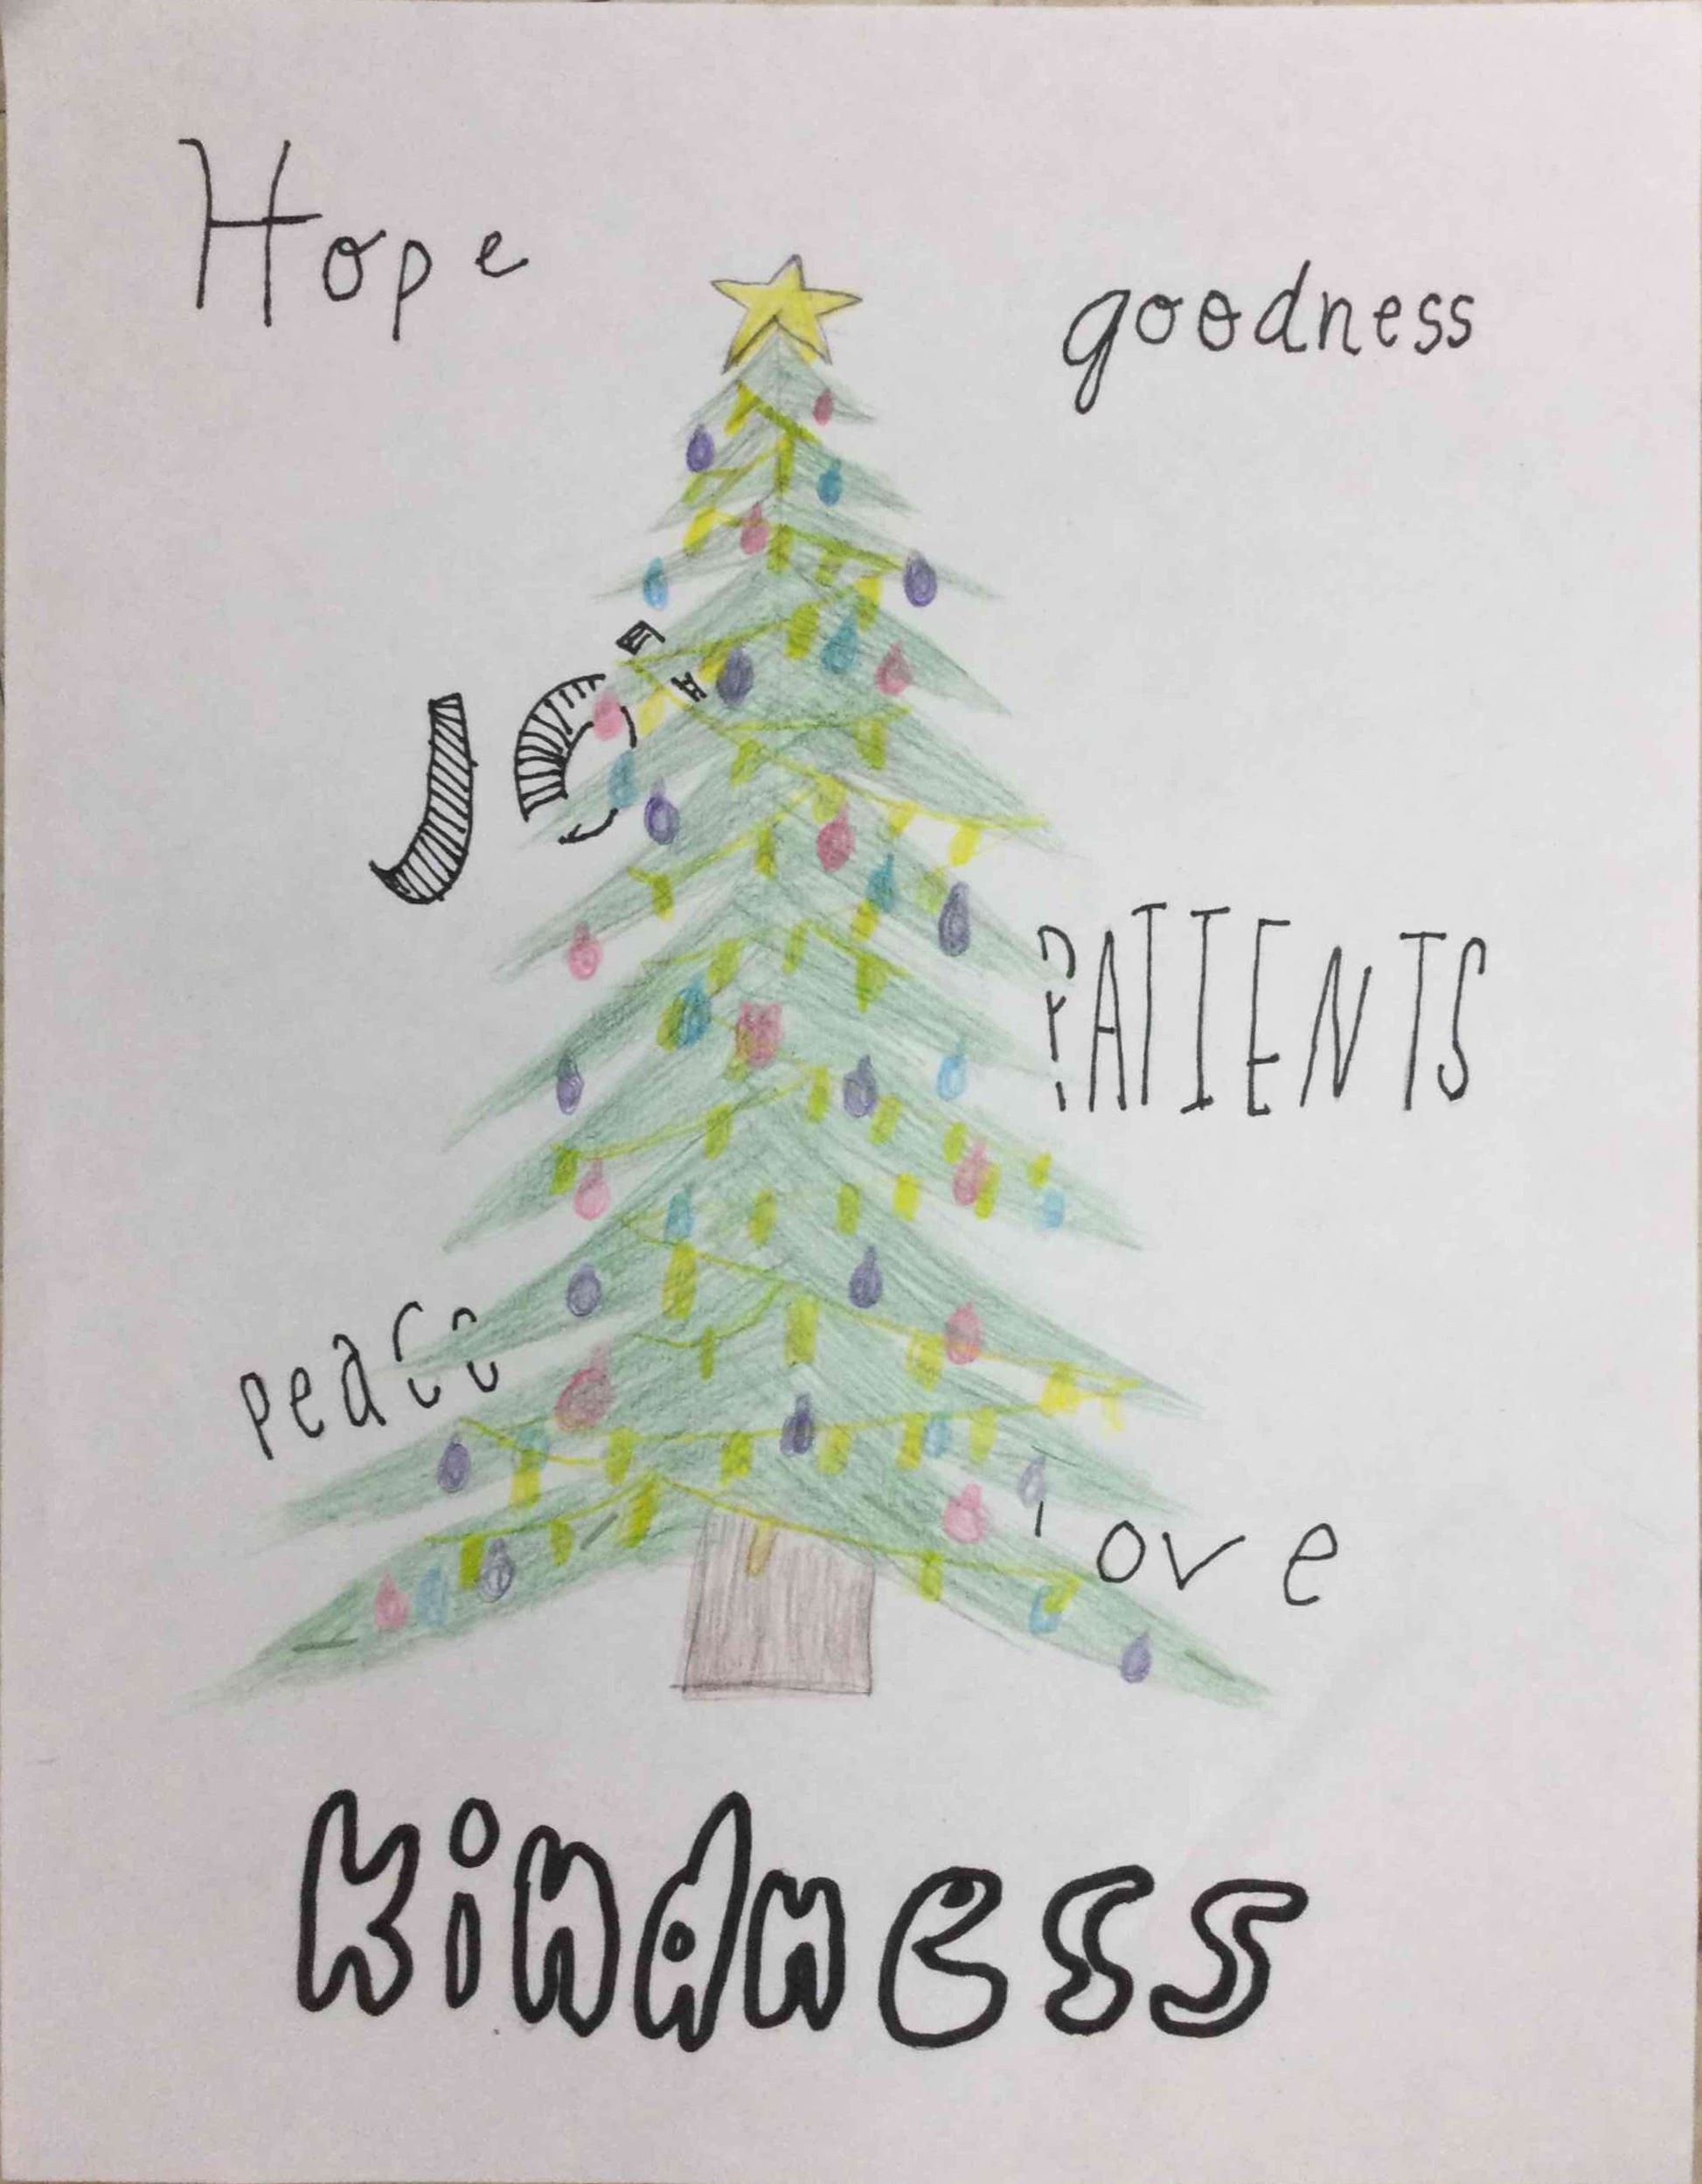 Hope
goodness
JOY
PATIENTS
peace
love
Kindness